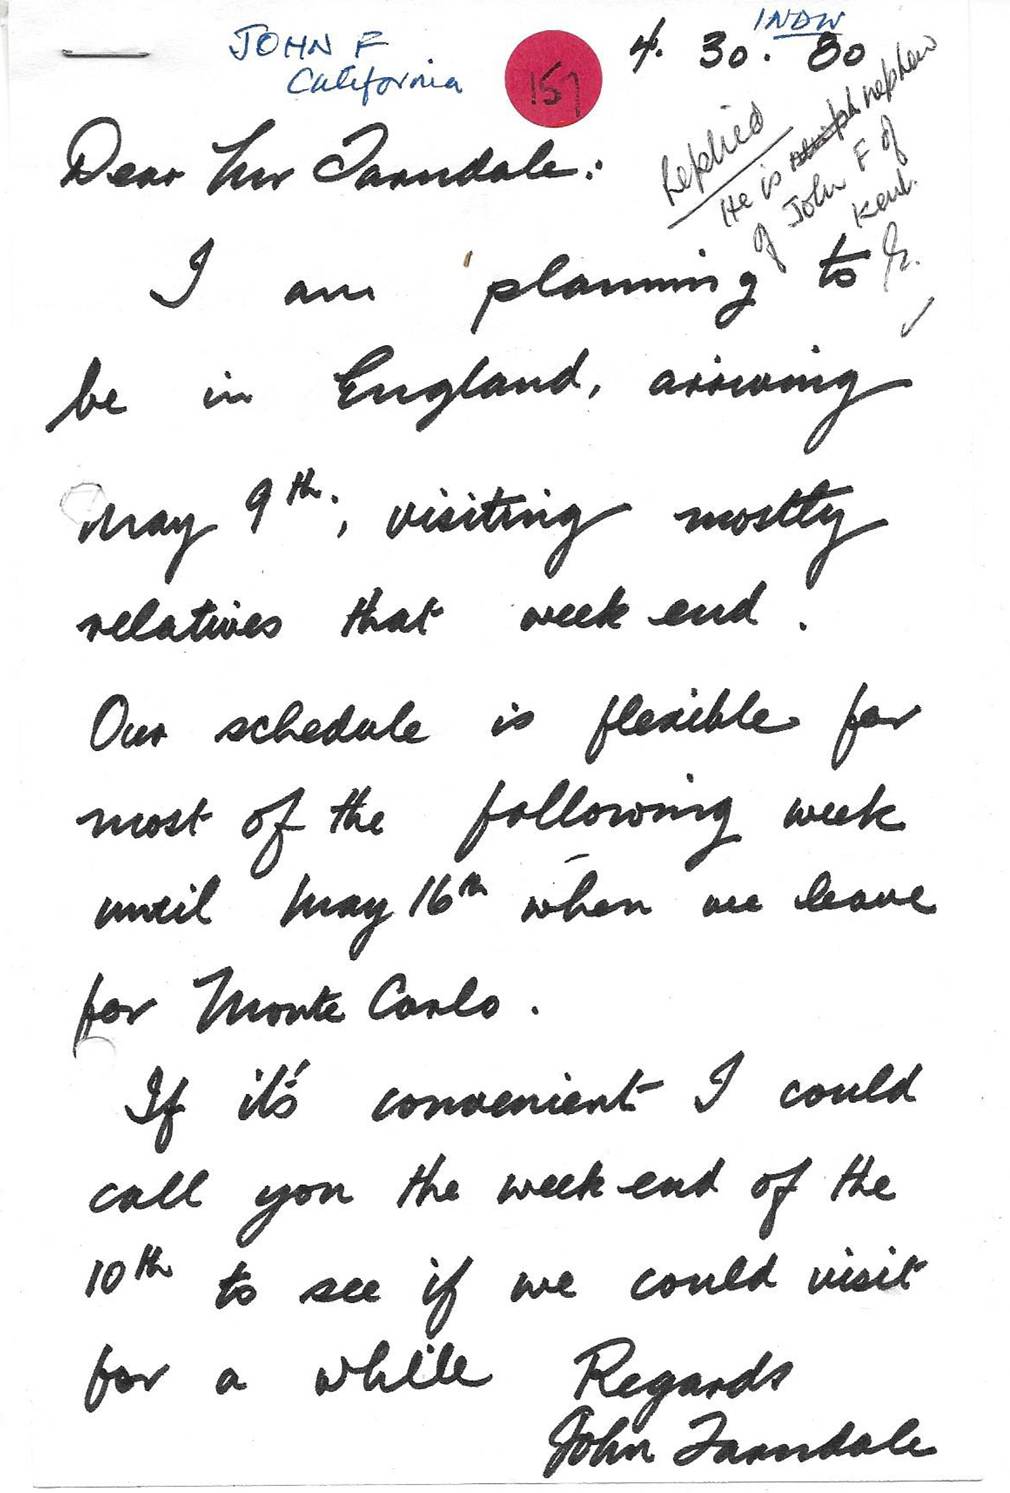 JOHN F
California
151
INDW
4. 30. 80
Replied
He is nephew
of John F of
Kent.
Dear Mr Farndale:
I am planning to
be in England, arriving
May 9th, visiting mostly
relatives that week end.
Our schedule is flexible for
most of the following week
until May 16th when we leave
for Monte Carlo.
If it's convenient I could
call you the week end of the
10th to see if we could visit
for a while
Regards
John Farndale